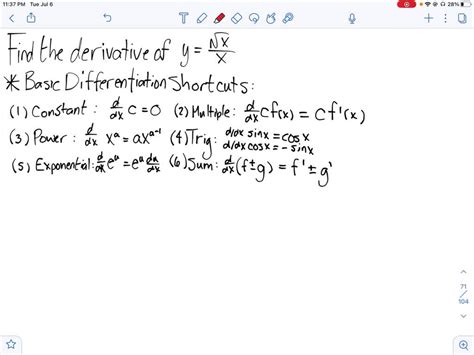 11:37 PM Tue Jul 6 28%
Find the derivative of y = √x/x
* Basic Differentiation Shortcuts:
(1) Constant: d/dx c = 0 (2) Multiple: d/dx cf(x) = cf'(x)
(3) Power: d/dx x^a = ax^(a-1) (4) Trig: d/dx sinx = cosx
d/dx cosx = -sinx
(5) Exponential: d/dx e^u = e^u du/dx (6) Sum: d/dx (f ± g) = f' ± g'
71
/
104